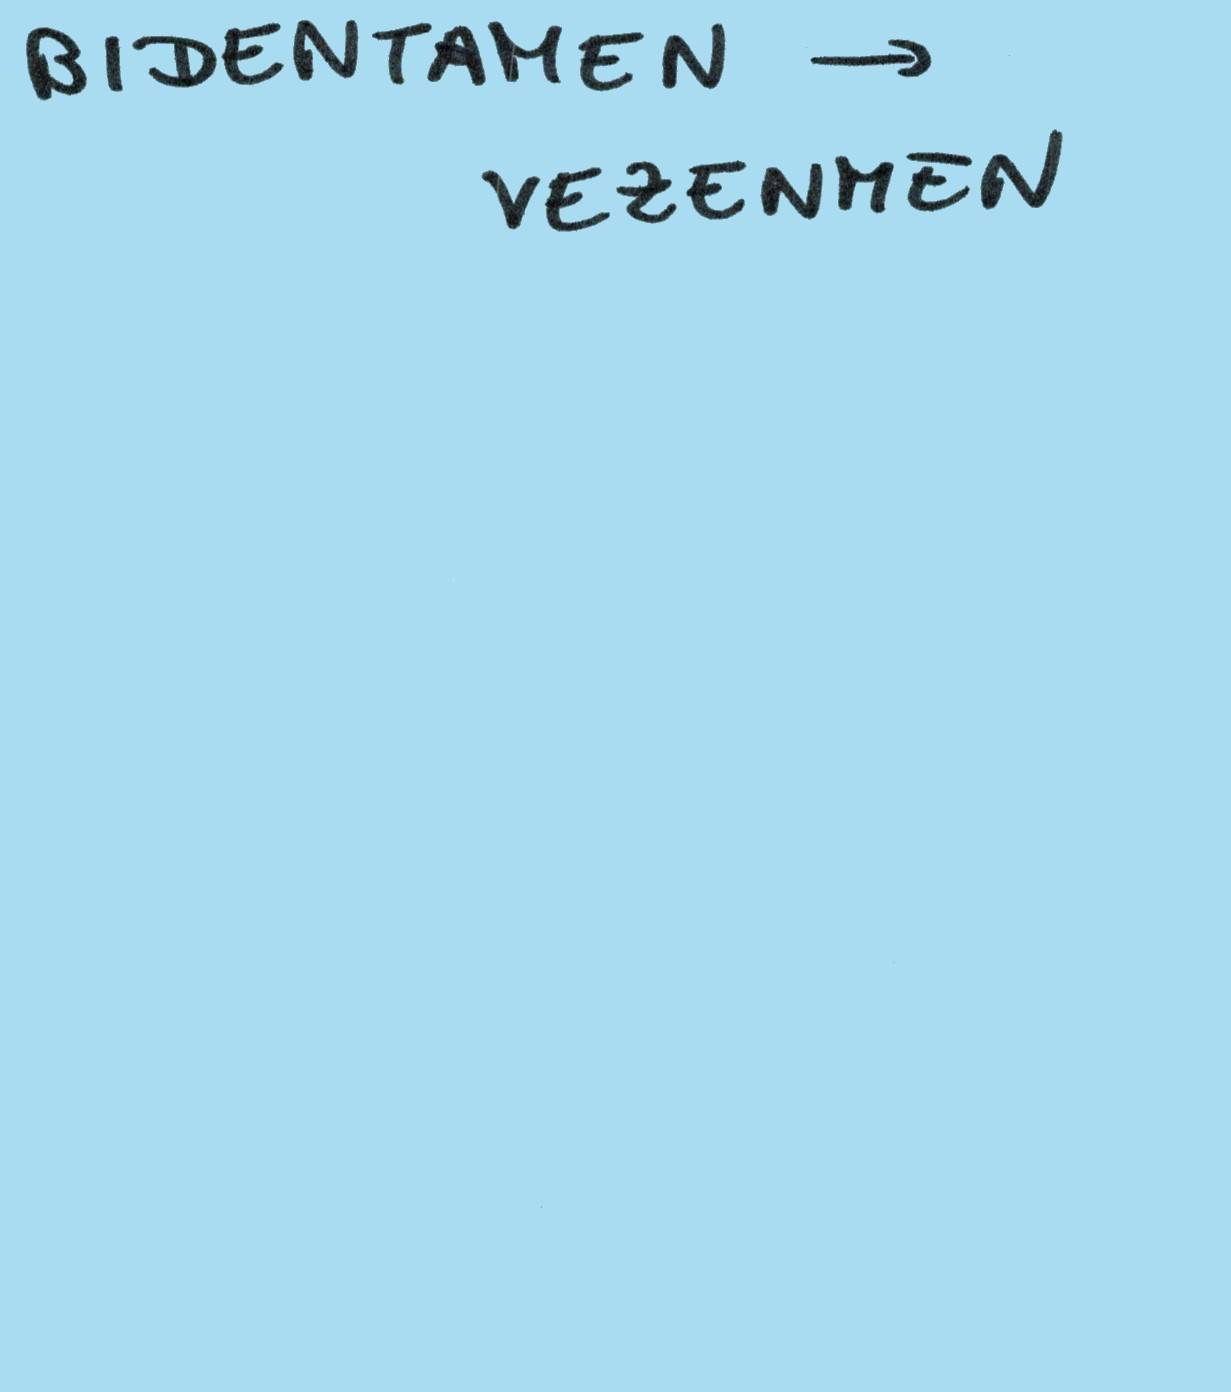 BIDENTAMEN →
VEZENMEN